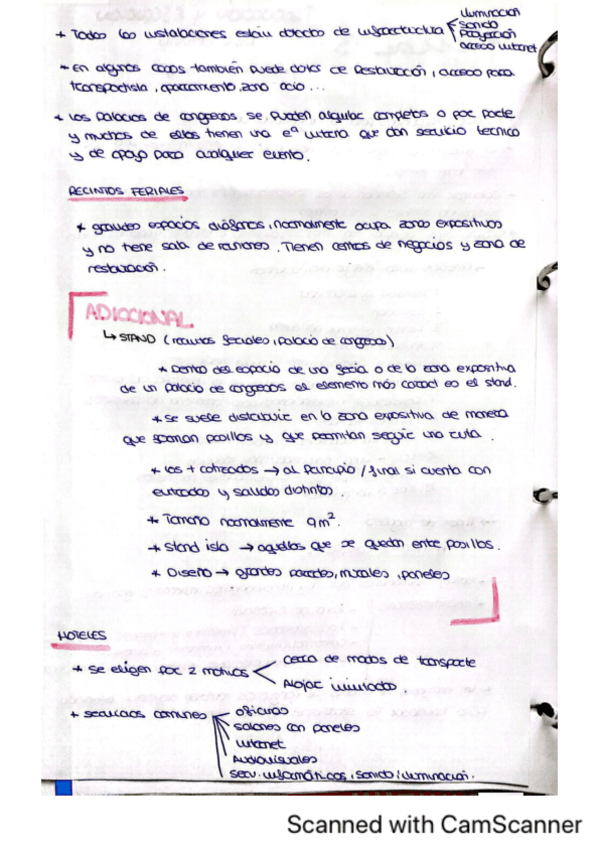 * Todas las instalaciones están dotadas de infraestructura < iluminación
sonido
Proyección
acceso internet
- En algunos casos también puede dotar de restauración, acceso para
transportista, aparcamiento, zona ocio ...
* Los palacios de congresos se pueden alquilar completos o por parte
y muchos de ellos tienen una eª interna que dan servicio técnico
y de apoyo para cualquier evento.
RECINTOS FERIALES
* grandes espacios diáfanos, normalmente ocupa zonas expositivas
y no tiene sala de reuniones. Tienen centros de negocios y zona de
restauración.
ADICCIONAL
↳ STAND (recintos feriales, palacio de congresos)
* Dentro del espacio de una feria o de la zona expositiva
de un palacio de congresos el elemento más común es el stand.
* Se suele distribuir en la zona expositiva de manera
que forman pasillos y que permitan seguir una ruta.
* los + cotizados → al principio / final si cuenta con
entradas y salidas distintas.
* Tamaño normalmente 9m².
* Stand isla → aquellos que se quedan entre pasillos.
* Diseño → grandes paredes, murales, paneles
HOTELES
* se eligen por 2 motivos < cerca de modos de transporte
Alojar invitados.
* servicios comunes < oficinas
salones con paneles
internet
Audiovisuales
serv. informáticos, sonido, iluminación.
Scanned with CamScanner